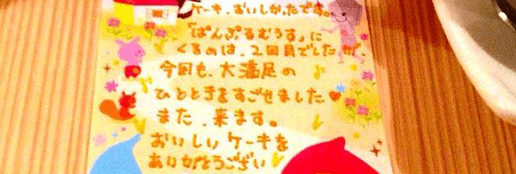 ケーキ、おいしかったです。
「ぱんぷるむうす」に
くるのは、2回目でしたが、
今回も、大満足の
ひとときをすごせました
また、来ます。
おいしいケーキを
ありがとうござい